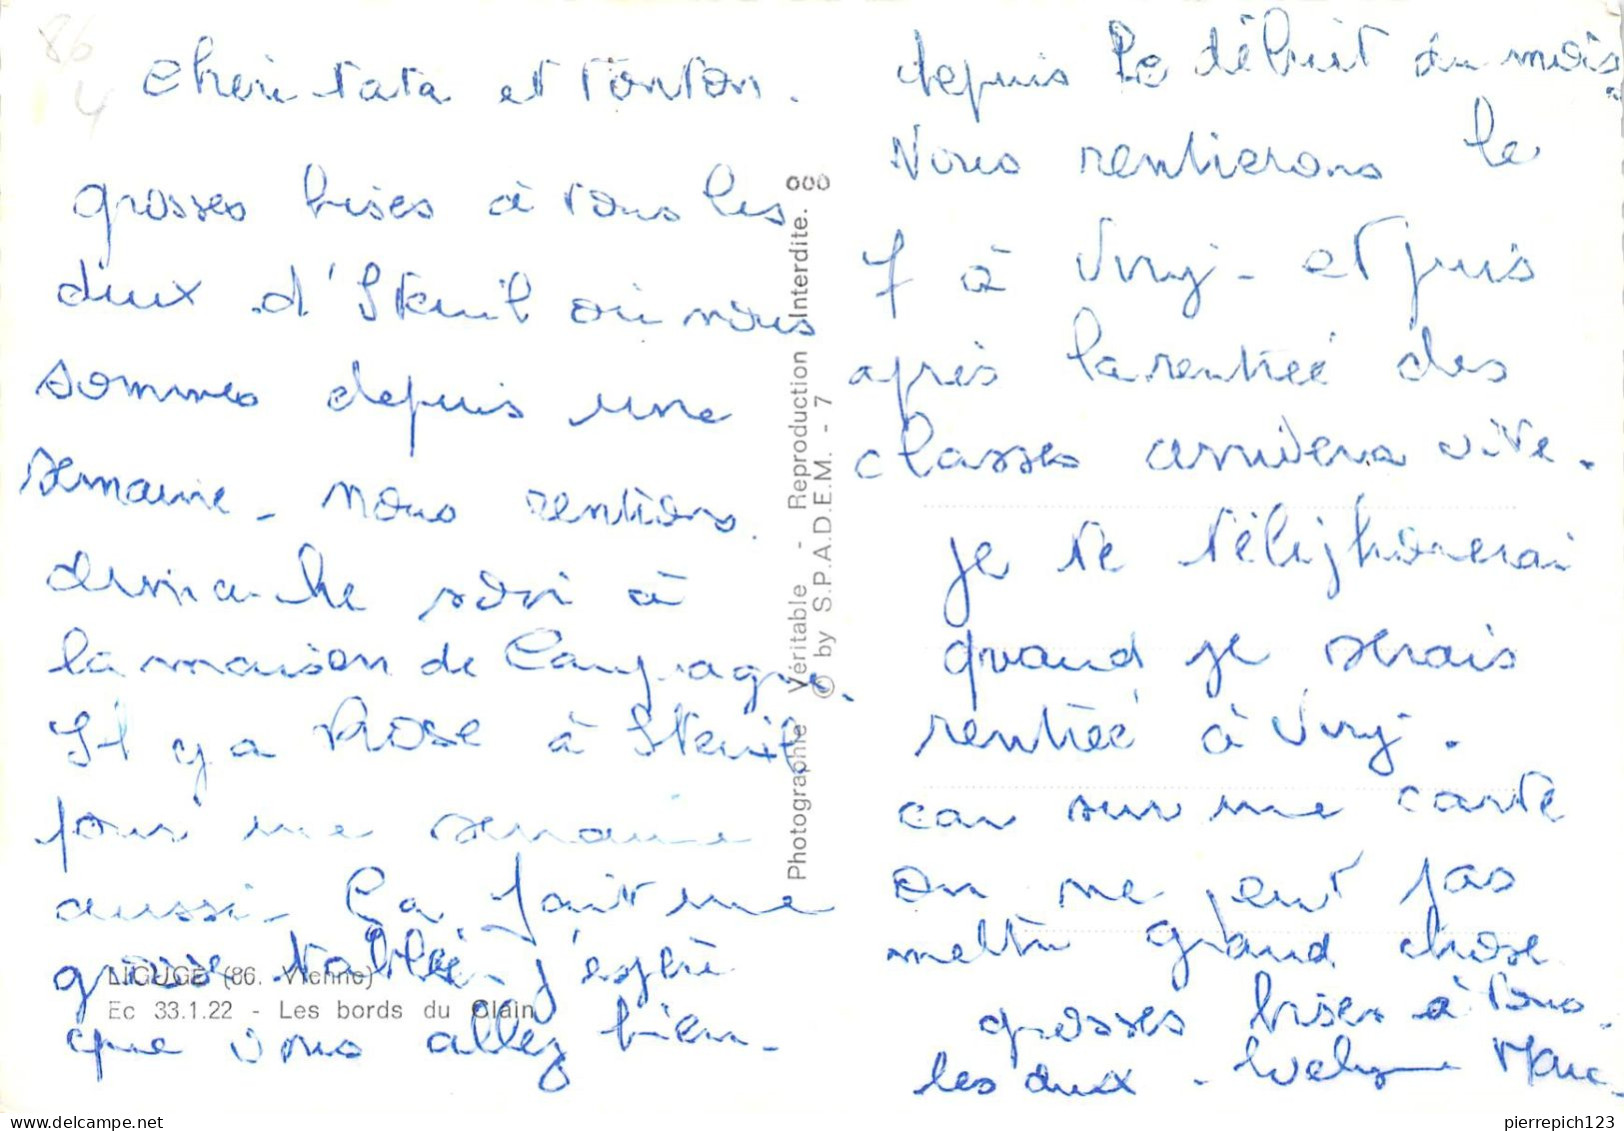 86
4
cheri tata et tonton.
grosses bises à tous les
deux d'Iteuil où nous
sommes depuis une
semaine - nous rentions
dimanche soir à
la maison de Campagne.
Il y a Rose à Iteuil
pour une semaine
aussi - ça fait une
grosse tablée - j'espère
que vous allez bien -
depuis le début du mois.
Nous rentierons le
7 à Viry - et puis
après la rentréé des
classes arrivera vite.
je te téléphonerai
quand je serais
rentréé à Viry.
car sur une carte
on ne peut pas
mettre grand chose
grosses bises à tous
les deux - Marc
LIGUGE (86. Vienne)
Ec 33.1.22 - Les bords du Clain
Photographie Véritable - Reproduction Interdite.
© by S.P.A.D.E.M. - 7
pierrepich123